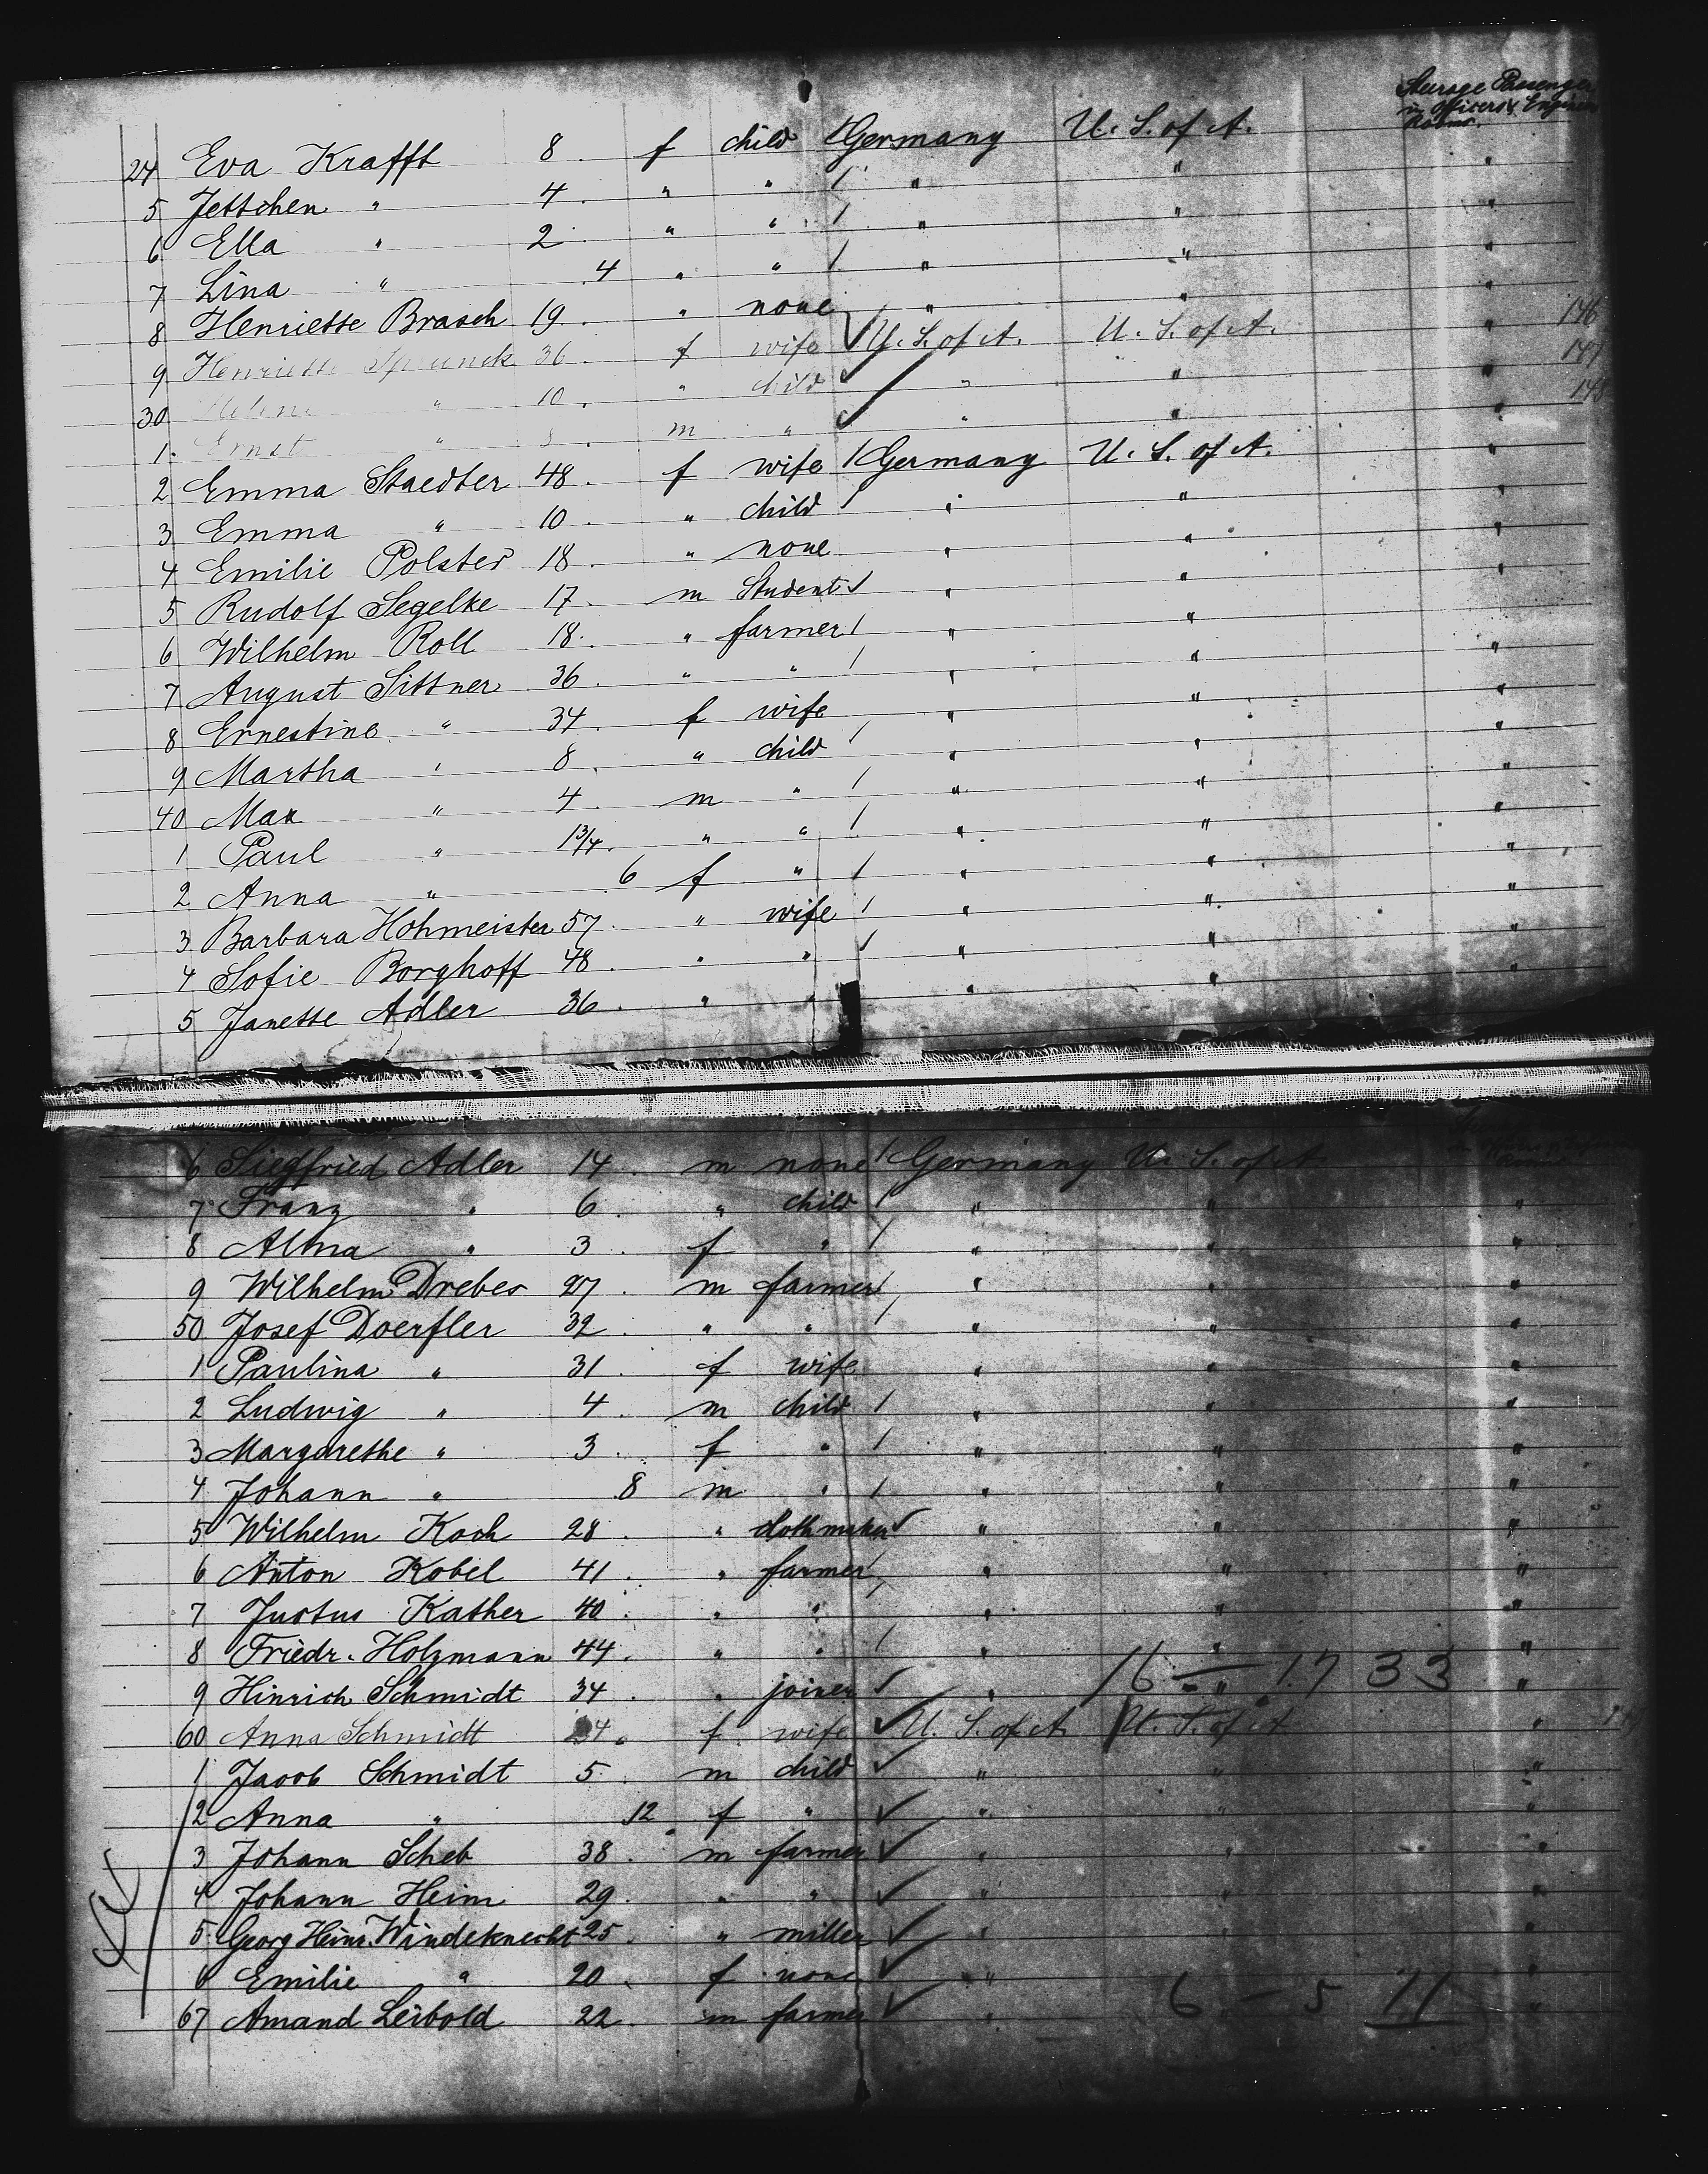 Steerage Passenger
in Officers & Engineers
Rooms.
24 Eva Krafft 8 f child Germany U. S. of A.
5 Jettchen " 4 " " " " "
6 Ella " 2 " " " " "
7 Lina " 4 " " " " "
8 Henriette Brasch 19 " none " " "
9 Henriette 36 f wife U. S. of A. U. S. of A. " 146
30 Helene " 10 " child " " " 147
1 Ernst " m " " " "
2 Emma Staedter 48 f wife Germany U. S. of A. "
3 Emma " 10 " child " " "
4 Emilie Polster 18 " none " " "
5 Rudolf Segelke 17 m Student " " "
6 Wilhelm Roll 18 " farmer " " "
7 August Sittner 36 " " " " "
8 Ernestine " 34 f wife " " "
9 Martha " 8 " child " " "
40 Max " 4 m " " " "
1 Paul " 1 3/4 " " " " "
2 Anna " 6 f " " " "
3 Barbara Hohmeister 57 " wife " " "
4 Sofie Borghoff 48 " " " " "
5 Janette Adler 36 " " " " "
6 Siegfried Adler 14 m none Germany U. S. of A
7 Franz " 6 " child " " "
8 Alma " 3 f " " " "
9 Wilhelm Drebes 27 m farmer " " "
50 Josef Doerfler 32 " " " " "
1 Paulina " 31 f wife " " "
2 Ludwig " 4 m child " " "
3 Margarethe " 3 f " " " "
4 Johann " 8 m " " " "
5 Wilhelm Koch 28 " clothmaker " " "
6 Anton Kobel 41 " farmer " " "
7 Justus Kather 40 " " " " "
8 Friedr. Holzmann 44 " " " " "
9 Hinrich Schmidt 34 " joiner " " "
16 — 17 33
60 Anna Schmidt 24 f wife U. S. of A U. S. of A "
1 Jacob Schmidt 5 m child " " "
2 Anna " 12 f " " " "
3 Johann Scheb 38 m farmer " " "
4 Johann Heim 29 " " " " "
5 Georg Heinr. Windeknecht 25 " miller " " "
6 Emilie " 20 f none " "
67 Amand Leibold 22 m farmer " "
6 — 5 11